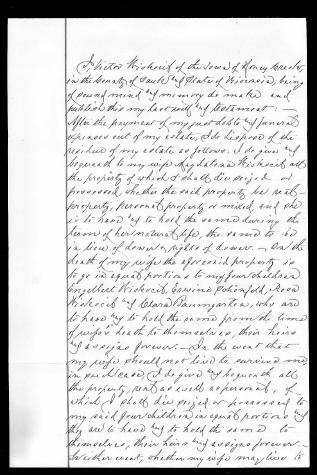 I Victor Wickcizf of the Town of Honey Creek,
in the County of Sauk and State of Wisconsin, being
of sound mind and memory do make and
publish this my last will and testament: —
After the payment of my just debts and funeral
expenses out of my estate, I do dispose of the
residue of my estate as follows: I do give and
bequeath to my wife Magdalena all
the property of which I shall die seized or
possessed, whether the said property be real
property, personal property or mixed, and she
is to have and to hold the same during the
term of her natural life, the same to be
in piece of dower & rights of dower. — On the
death of my wife the aforesaid property is
to go in equal portions to my four children
Engelbert Erwina Rosa
and Clara Baumgarten, who are
to have and to hold the same from the time
of wife's death to themselves, their heirs
and assigns forever. — In the event that
my wife should not live to survive me
in such case, I do give and bequeath all
the property, real as well as personal, of
which I shall die seized or possessed to
my said four children in equal portions and
they are to have and to hold the same to
themselves, their heirs and assigns forever. —
either event, whether my wife may live to